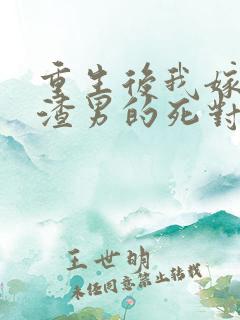 重生後我嫁
渣男的死對
王世明
未经同意禁止转载